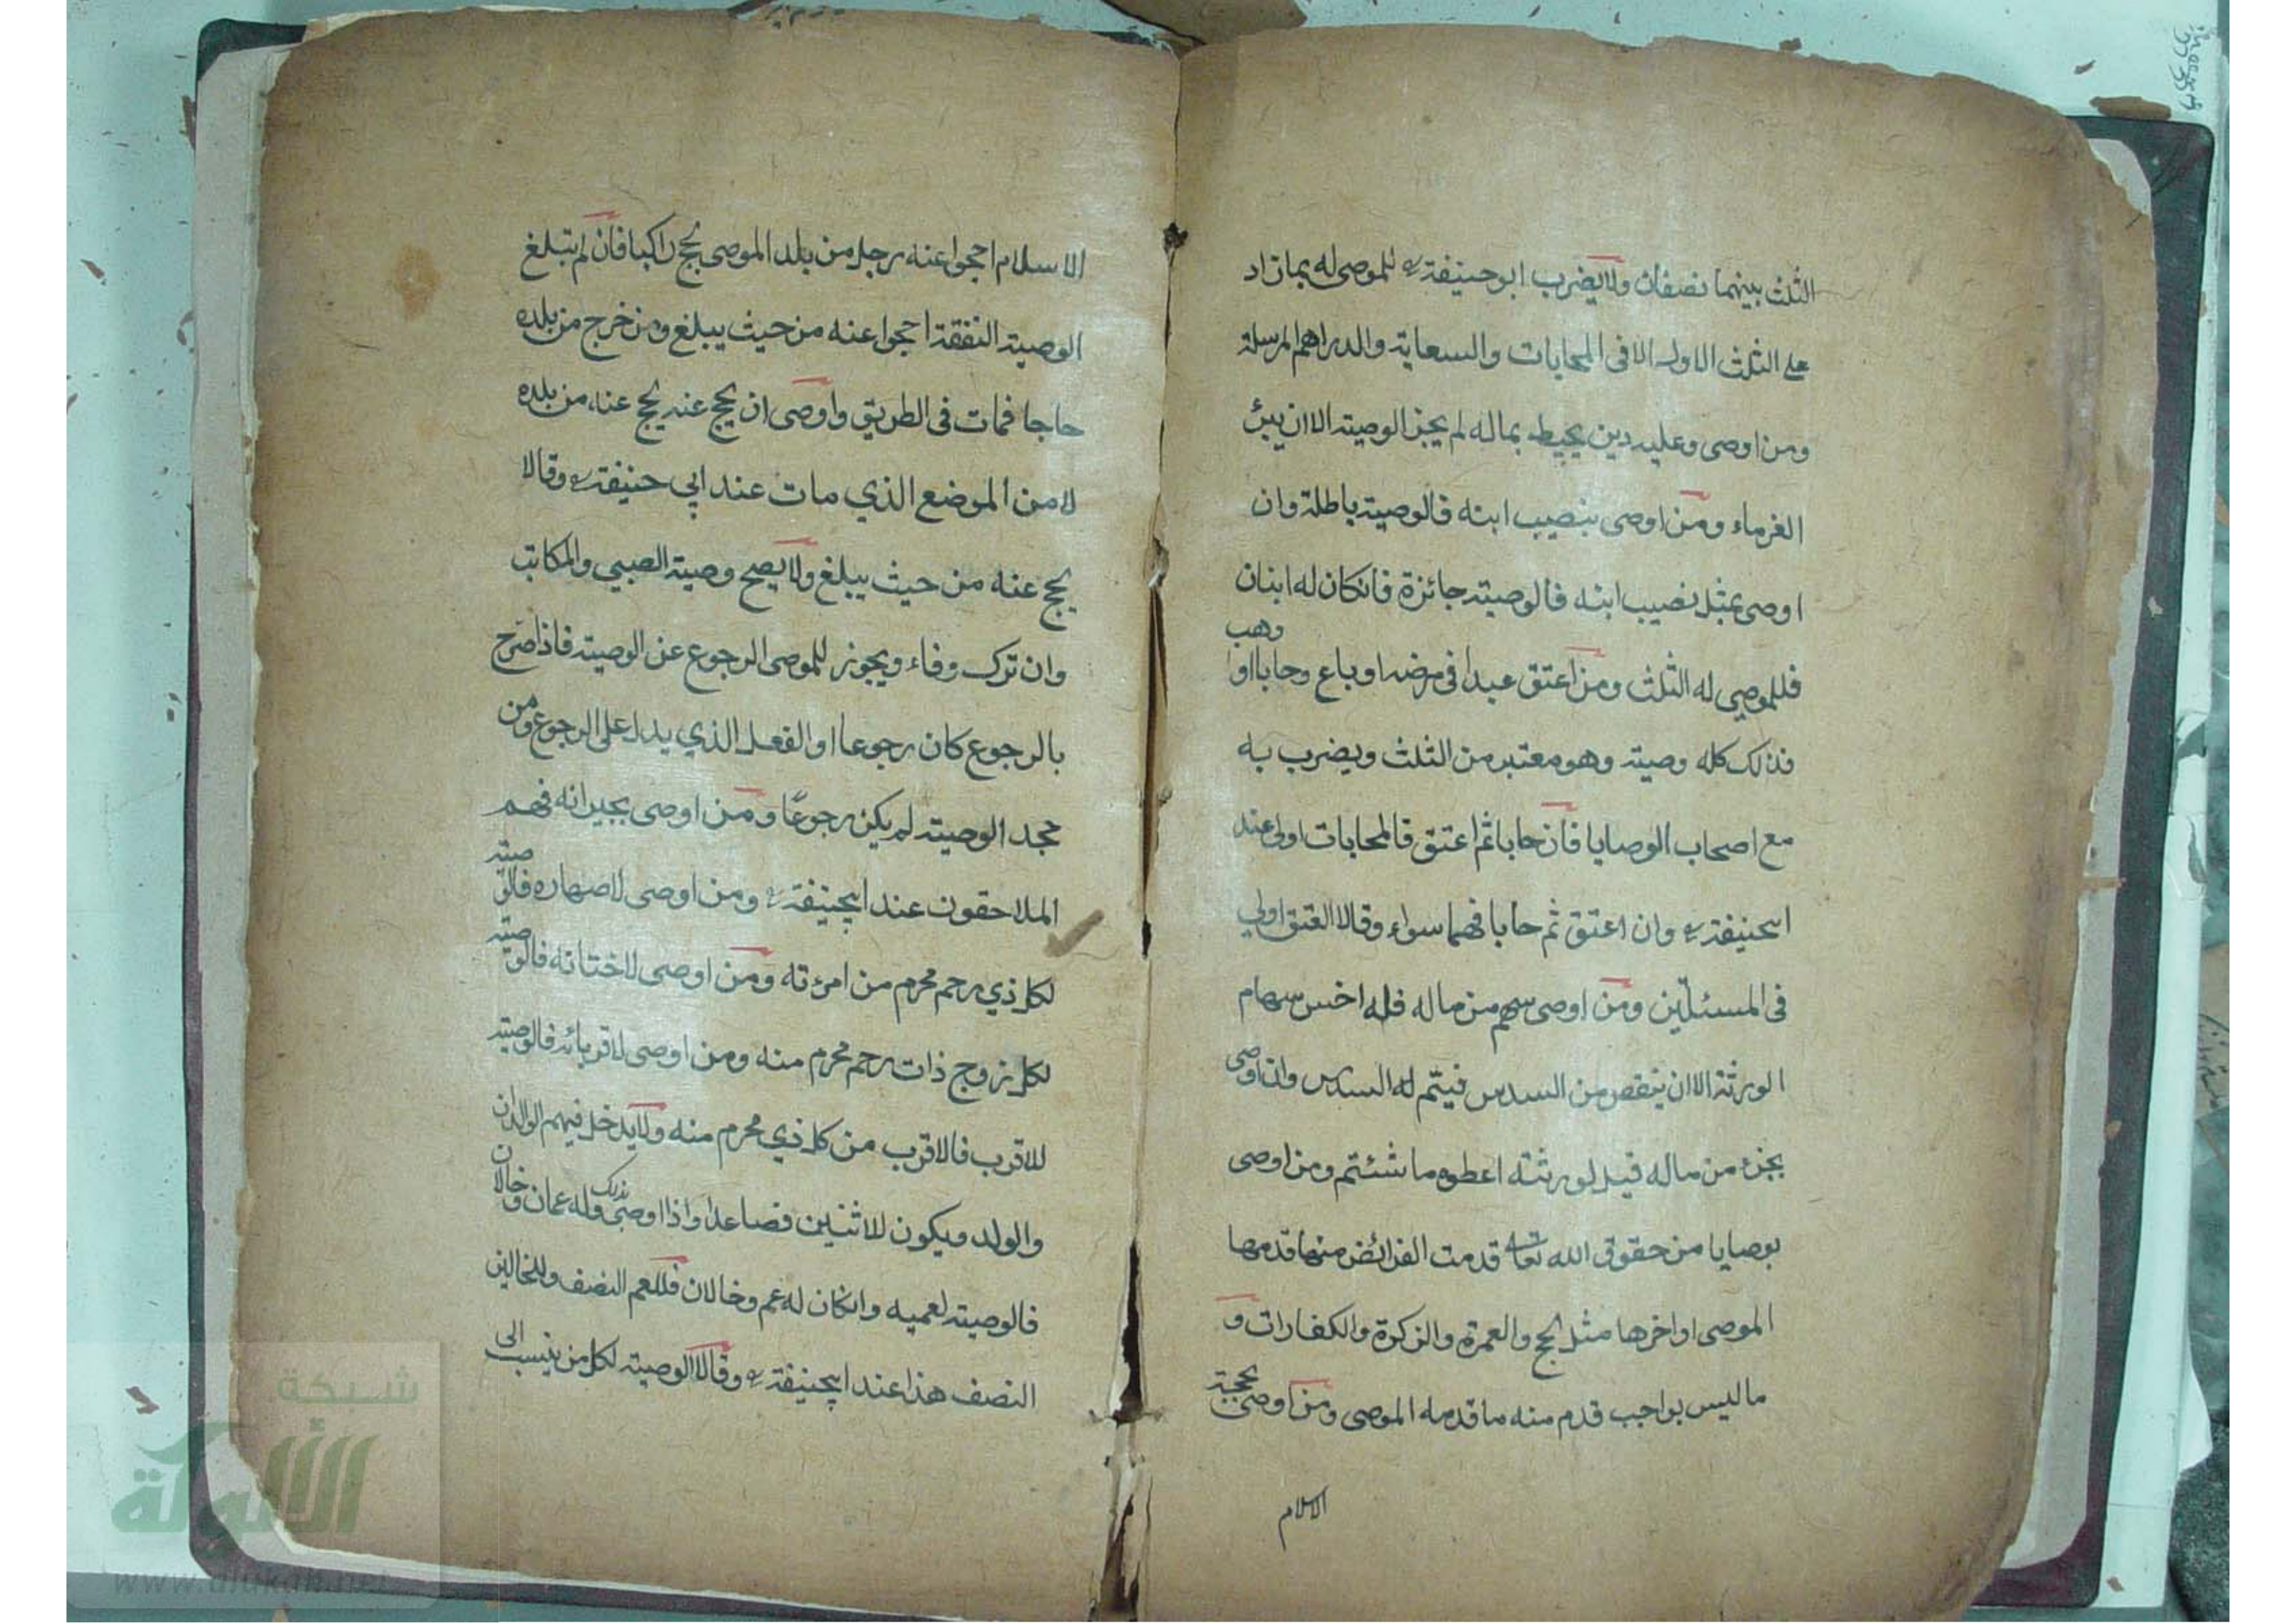 الثلث بينهما نصفان ولا يضرب ابو حنيفة رح للموصى له بما زاد
على الثلث الاول الا فى المحابات والسعاية والدراهم المرسلة
ومن اوصى وعليه دين يحيط بماله لم يجز الوصية الا ان يبرئ
الغرماء ومن اوصى بنصيب ابنه فالوصية باطلة وان
اوصى بمثل نصيب ابنه فالوصية جائزة فانكان له ابنان
فللموصى له الثلث ومن اعتق عبدا فى مرضه او باع وحابا او وهب
فذلك كله وصية وهو معتبر من الثلث ويضرب به
مع اصحاب الوصايا فان حابا ثم اعتق فالمحابات اولى عند
ابيحنيفة رح وان اعتق ثم حابا فهما سواء وقالا العتق اولى
فى المسئلتين ومن اوصى بسهم من ماله فله اخس سهام
الورثة الا ان ينقص من السدس فيتم له السدس وان اوصى
بجزء من ماله قيل لورثته اعطوه ما شئتم ومن اوصى
بوصايا من حقوق الله تعالى قدمت الفرائض منها قدمها
الموصى او اخرها مثل الحج والعمرة والزكوة والكفارات و
ما ليس بواجب قدم منه ما قدمه الموصى ومن اوصى بحجة
الاسلام
الاسلام احجوا عنه رجل من بلد الموصى يحج راكبا فان لم تبلغ
الوصية النفقة احجوا عنه من حيث يبلغ ومن خرج من بلده
حاجا فمات فى الطريق واوصى ان يحج عنه يحج عنه من بلده
لا من الموضع الذي مات عند ابي حنيفة رح وقالا
يحج عنه من حيث يبلغ ولا يصح وصية الصبي والمكاتب
وان ترك وفاء ويجوز للموصى الرجوع عن الوصية فاذا صرح
بالرجوع كان رجوعا او الفعل الذي يدل على الرجوع ومن
جحد الوصية لم يكن رجوعًا ومن اوصى بجيرانه فهم
الملاحقون عند ابيحنيفة رح ومن اوصى لاصهاره فالوصية
لكل ذي رحم محرم من امرءته ومن اوصى لاختانه فالوصية
لكل زوج ذات رحم محرم منه ومن اوصى لاقربائه فالوصية
للاقرب فالاقرب من كل ذي محرم منه ولا يدخل فيهم الوالدان
والولد ويكون للاثنين فصاعدا واذا اوصى بذلك وله عمان وخالان
فالوصية لعميه وانكان له عم وخالان فللعم النصف وللخالين
النصف هذا عند ابيحنيفة رح وقالا الوصية لكل من ينسب الى
شبكة
الألوكة
www.alukah.net